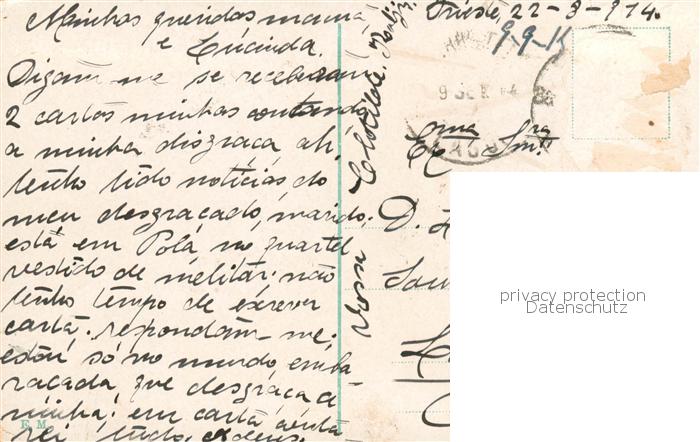 Minhas queridas mamã
e Lucinda.
Digam me se receberam
2 cartas minhas contando
a minha disgraça ah!
tenho tido noticias do
meu desgraçado, marido.
está em Pola no quartel
vestido de melitar. não
tenho tempo de escrever
carta. respondam-me,
estou só no mundo, emba
raçada que desgraça a
minha! em carta conta
rei tudo, adeus.
E. M.
Vossa Clotilde
Trieste, 22-8-914.
9-9-14
Exma Snra
D.
privacy protection
Datenschutz